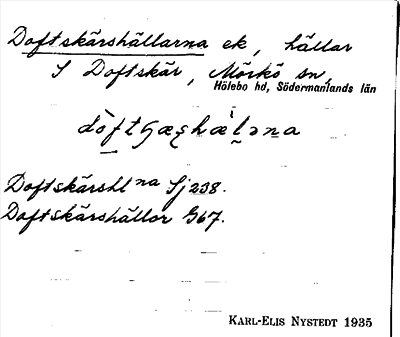 Doftskärshällarna ek, hällar
S Doftskär, Mörkö sn,
Hölebo hd, Södermanlands län
Doftskärshl na Sj 238.
Doftskärshällor G67.
KARL-ELIS NYSTEDT 1935